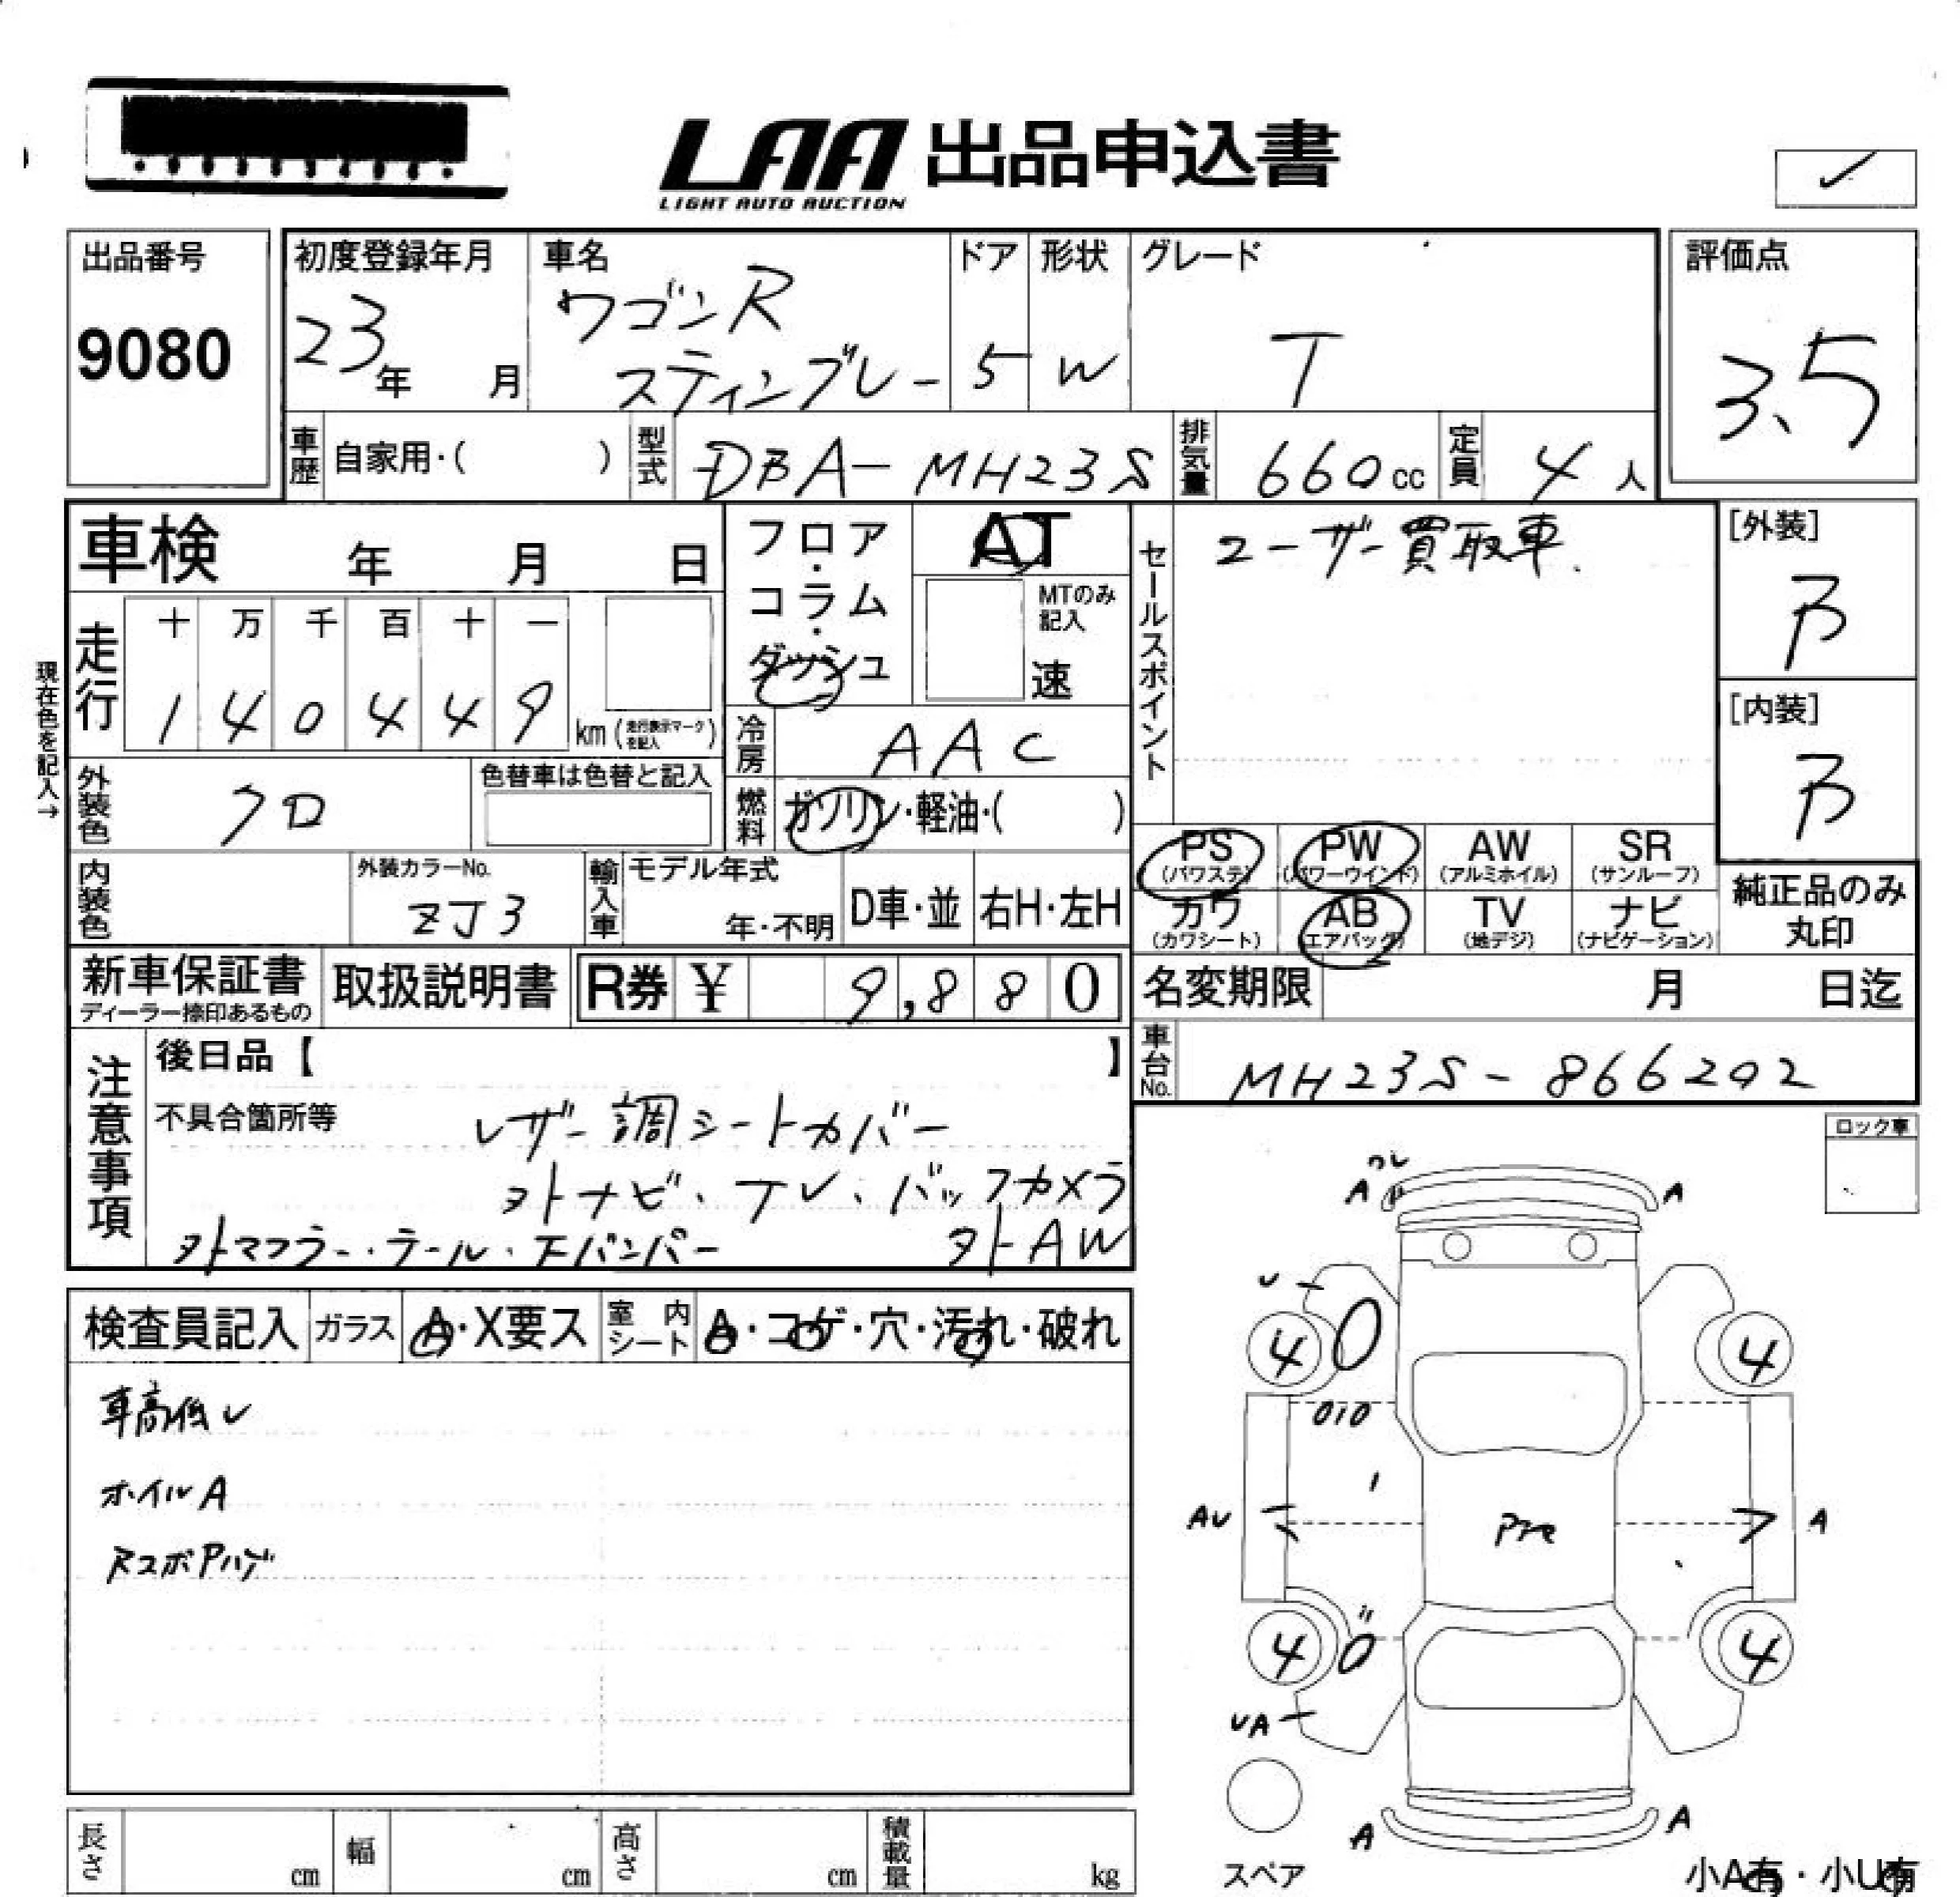 LAA 出品申込書
LIGHT AUTO AUCTION
出品番号
9080
初度登録年月
23年 月
車名
ワゴンR
スティングレー
ドア
5
形状
W
グレード
T
評価点
3.5
車歴 自家用・( )
型式 DBA-MH23S
排気量 660cc
定員 4人
車検 年 月 日
フロア・コラム・ダッシュ
AT
MTのみ記入
速
セールスポイント
ユーザー買取車.
[外装]
B
[内装]
B
現在色を記入→
走行
十 万 千 百 十 一
1 4 0 4 4 9 km (走行表示マークを記入)
冷房 AAC
外装色 クロ
色替車は色替と記入
燃料 ガソリン・軽油・( )
PS (パワステ)
PW (パワーウインド)
AW (アルミホイル)
SR (サンルーフ)
カワ (カワシート)
AB (エアバッグ)
TV (地デジ)
ナビ (ナビゲーション)
純正品のみ
丸印
内装色
外装カラーNo.
ZJ3
輸入車
モデル年式
年・不明
D車・並
右H・左H
新車保証書
ディーラー捺印あるもの
取扱説明書
R券 ¥ 9,880
名変期限 月 日迄
車台No. MH23S-866292
注意事項
後日品【 】
不具合箇所等
レザー調シートカバー
外ナビ、TV、バックカメラ
外マフラー・テール・Fバンパー 外AW
ロック車
検査員記入
ガラス A・X要ス
室内シート A・コゲ・穴・汚れ・破れ
車高低し
ホイルA
RスポPハゲ
ワレ
A A
U
4 4
AU A
4 4
UA
A A
スペア
小A有・小U有
長さ cm
幅 cm
高さ cm
積載量 kg